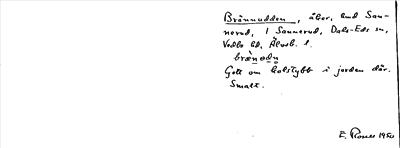 Brännudden, åker, hmd San-
nerud, 1 Sannerud, Dals-Eds sn,
Vedbo hd, Älvsb. l.
Gott om kolstybb i jorden där.
Smalt.
E. 1950